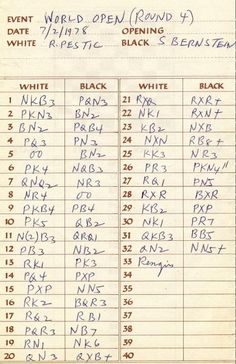 EVENT WORLD OPEN (ROUND 4)
DATE 7/2/1978 OPENING
WHITE R. PESTIC BLACK S BERNSTEIN
WHITE BLACK WHITE BLACK
1 NKB3 PQN3 21 RXQ RXR+
2 PKN3 BN2 22 NK1 RXN+
3 BN2 PQB4 23 KB2 NXB
4 PQ3 PN3 24 NXN RB8+
5 OO BN2 25 KK3 NR3
6 PK4 NQB3 26 PR3 PKN4
7 QNQ2 NR3 27 RQ1 PN5
8 NR4 OO 28 RXR BXR
9 PKB4 PB4 29 KB2 PXP
10 PK5 QB2 30 NK1 PR7
11 N(2)B3 QRQ1 31 QKB3 BB5
12 PB3 NB2 32 QN2 NN5+
13 RK1 PK3 33 Resigns
14 PQ4 PXP 34
15 PXP NN5 35
16 RK2 BQR3 36
17 RQ2 RB1 37
18 PQR3 NB7 38
19 RN1 NK6 39
20 QN3 QXB+ 40